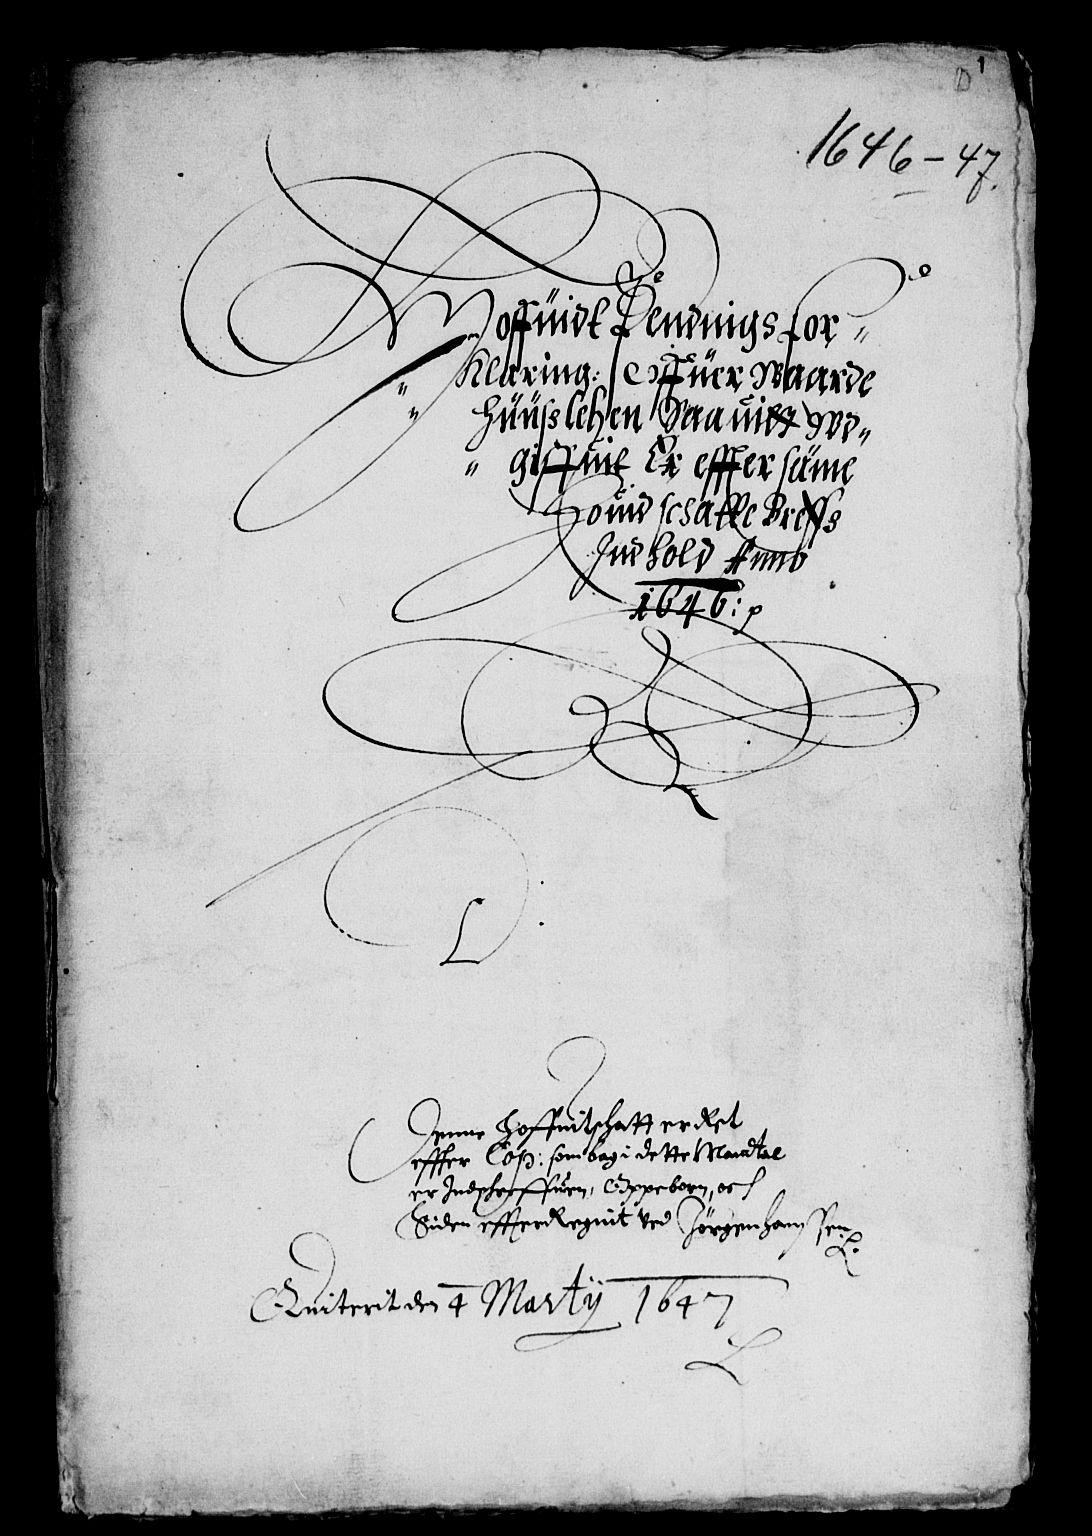 1
D
1646-47.
Hoffüidt Pendnigs for„
„ Klaring: Offüer Waarde
„ hüüsslehen Saa vidt Wd„
„ giffuit Er effter säme
Houid schatte Breffs
Indhold Anno
1646:
L
Denne Hoffuitschatt er Ret
effter Cop: som bag i dette Mandtal
er Indschreffuen, Oppeboren, och
Siden effter Regnit Ved Jörgen Hanssen
Quiterit den 4 Martij 1647